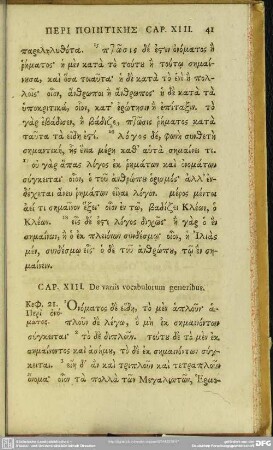 ΠΕΡΙ ΠΟΙΗΤΙΚΗΣ CAP. XIII. 41
παρεληλυθότα. πτῶσις δέ ἐστιν ὀνόματος ἢ
ῥήματος· ἡ μὲν κατὰ τὸ τούτου ἢ τούτῳ σημαί-
νουσα, καὶ ὅσα τοιαῦτα· ἡ δὲ κατὰ τὸ ἑνὶ ἢ πολ-
λοῖς· οἷον, ἄνθρωποι ἢ ἄνθρωπος· ἡ δὲ κατὰ τὰ
ὑποκριτικά, οἷον, κατ' ἐρώτησιν ἢ ἐπίταξιν. τὸ
γὰρ ἐβάδισεν, ἢ βάδιζε, πτῶσις ῥήματος κατὰ
ταῦτα τὰ εἴδη ἐστί. λόγος δὲ, φωνὴ συνθετὴ
σημαντικὴ, ἧς ἔνια μέρη καθ' αὑτὰ σημαίνει τι.
οὐ γὰρ ἅπας λόγος ἐκ ῥημάτων καὶ ὀνομάτων
σύγκειται· οἷον, ὁ τοῦ ἀνθρώπου ὁρισμός· ἀλλ' ἐν-
δέχεται ἄνευ ῥημάτων εἶναι λόγον. μέρος μέντοι
ἀεί τι σημαῖνον ἕξει· οἷον ἐν τῷ, βαδίζει Κλέων, ὁ
Κλέων. εἷς δέ ἐστι λόγος διχῶς· ἢ γὰρ ὁ ἓν
σημαίνων, ἢ ὁ ἐκ πλειόνων συνδέσμων· οἷον, ἡ Ἰλιὰς
μὲν, συνδέσμῳ εἷς· ὁ δὲ τοῦ ἀνθρώπου, τῷ ἓν ση-
μαίνειν.
CAP. XIII. De variis vocabulorum generibus.
Κεφ. 21.
Περὶ ὀνό-
ματος.
Ὀνόματος δὲ εἴδη, τὸ μὲν ἁπλοῦν· ἁ-
πλοῦν δὲ λέγω, ὃ μὴ ἐκ σημαινόντων
σύγκειται· τὸ δὲ διπλοῦν. τούτου δὲ τὸ μὲν ἐκ
σημαίνοντος καὶ ἀσήμου, τὸ δὲ ἐκ σημαινόντων σύγ-
κειται. εἴη δ' ἂν καὶ τριπλοῦν καὶ τετραπλοῦν
ὄνομα· οἷον τὰ πολλὰ τῶν Μεγαλιωτῶν, Ἑρμο-